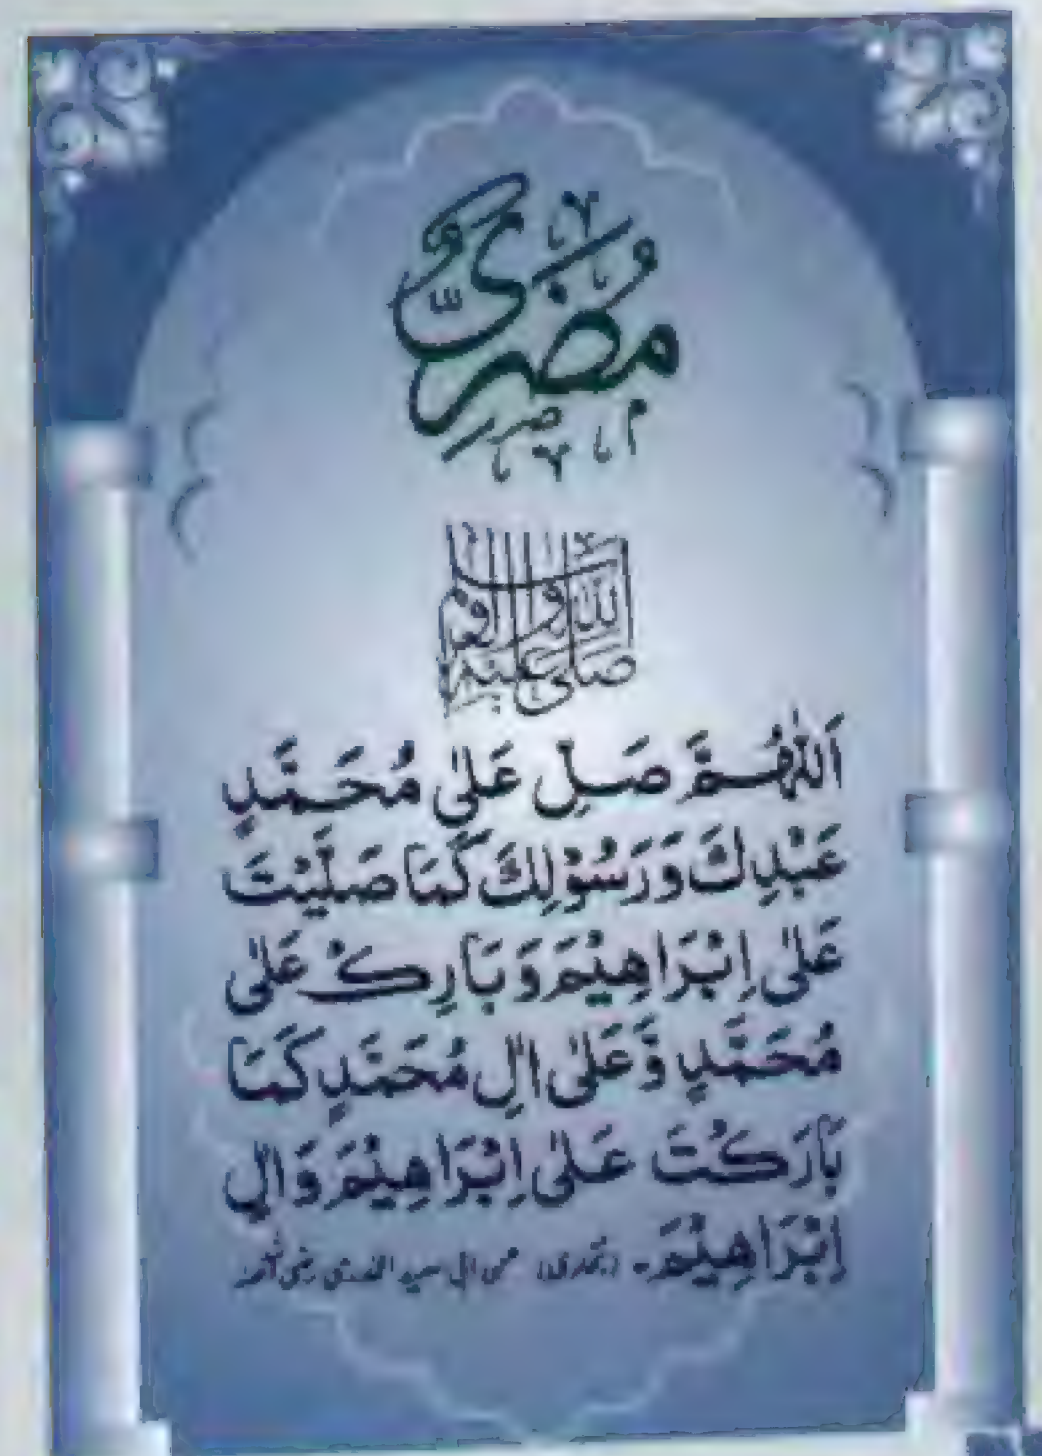 مُضَرِيٌّ
صَلَّى اللّٰهُ عَلَيْهِ وَآلِهِ وَسَلَّمَ
اَللّٰهُمَّ صَلِّ عَلٰى مُحَمَّدٍ
عَبْدِكَ وَرَسُوْلِكَ كَمَا صَلَّيْتَ
عَلٰى اِبْرَاهِيْمَ وَبَارِكْ عَلٰى
مُحَمَّدٍ وَّعَلٰى اٰلِ مُحَمَّدٍ كَمَا
بَارَكْتَ عَلٰى اِبْرَاهِيْمَ وَاٰلِ
اِبْرَاهِيْمَ۔ (بخاری) عن ابی سعید الخدری رضی اللہ عنہ